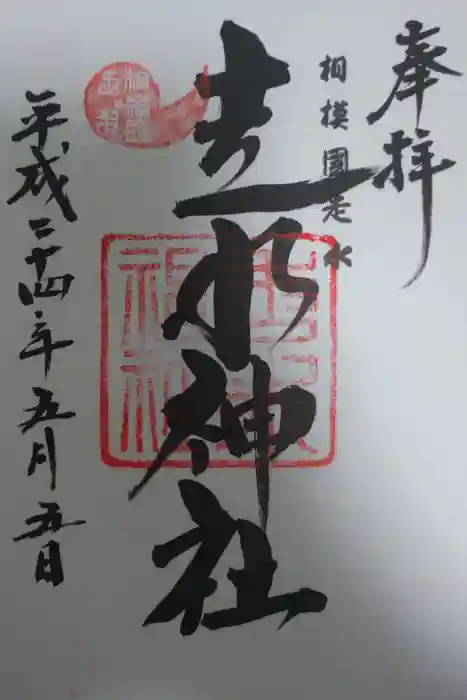 奉拝
相模國走水
走水神社
平成二十四年五月五日